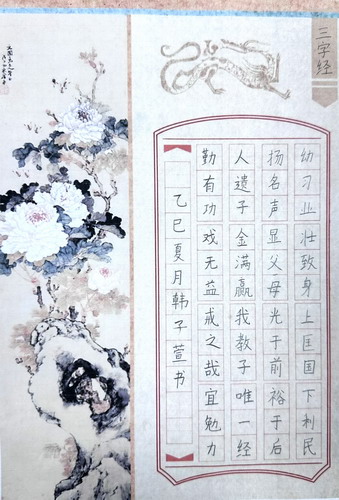 三字经
幼习业壮致身上匡国下利民
扬名声显父母光于前裕于后
人遗子金满赢我教子唯一经
勤有功戏无益戒之哉宜勉力
乙巳夏月韩子萱书